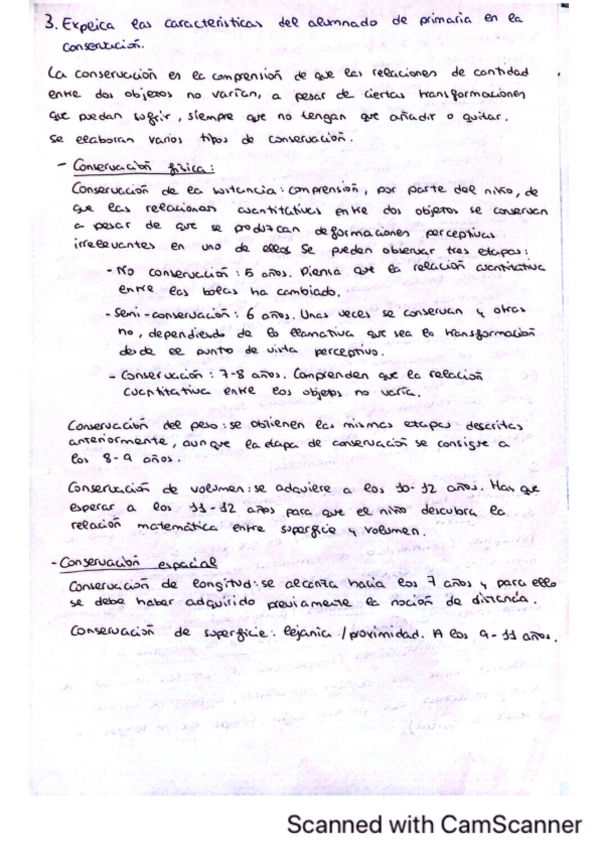 3. Explica las características del alumnado de primaria en la
conservación.
La conservación es la comprensión de que las relaciones de cantidad
entre dos objetos no varían, a pesar de ciertas transformaciones
que puedan sufrir, siempre que no tengan que añadir o quitar.
Se elaboran varios tipos de conservación.
- Conservación física:
Conservación de la sustancia: comprensión, por parte del niño, de
que las relaciones cuantitativas entre dos objetos se conservan
a pesar de que se produzcan deformaciones perceptivas
irrelevantes en uno de ellos. Se pueden observar tres etapas:
- No conservación: 5 años. Piensa que la relación cuantitativa
entre las bolas ha cambiado.
- Semi-conservación: 6 años. Unas veces se conservan y otras
no, dependiendo de lo llamativa que sea la transformación
desde el punto de vista perceptivo.
- Conservación: 7-8 años. Comprenden que la relación
cuantitativa entre los objetos no varía.
Conservación del peso: se obtienen las mismas etapas descritas
anteriormente, aunque la etapa de conservación se consigue a
los 8-9 años.
Conservación de volumen: se adquiere a los 10-12 años. Hay que
esperar a los 11-12 años para que el niño descubra la
relación matemática entre superficie y volumen.
- Conservación espacial
Conservación de longitud: se alcanza hacia los 7 años y para ello
se debe haber adquirido previamente la noción de distancia.
Conservación de superficie: lejanía / proximidad. A los 9-11 años.
Scanned with CamScanner